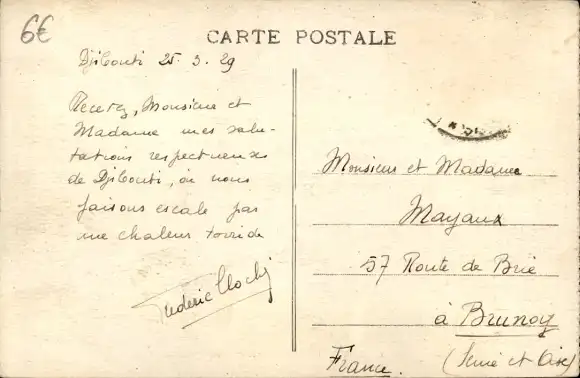 6€
CARTE POSTALE
Djibouti 25. 3. 29
Recevez, Monsieur et
Madame mes salu-
tations respectueuses
de Djibouti, où nous
faisons escale par
une chaleur torride
Frederic
Monsieur et Madame
Mayaux
57 Route de Brie
à Brunoy
(Seine et Oise)
France.